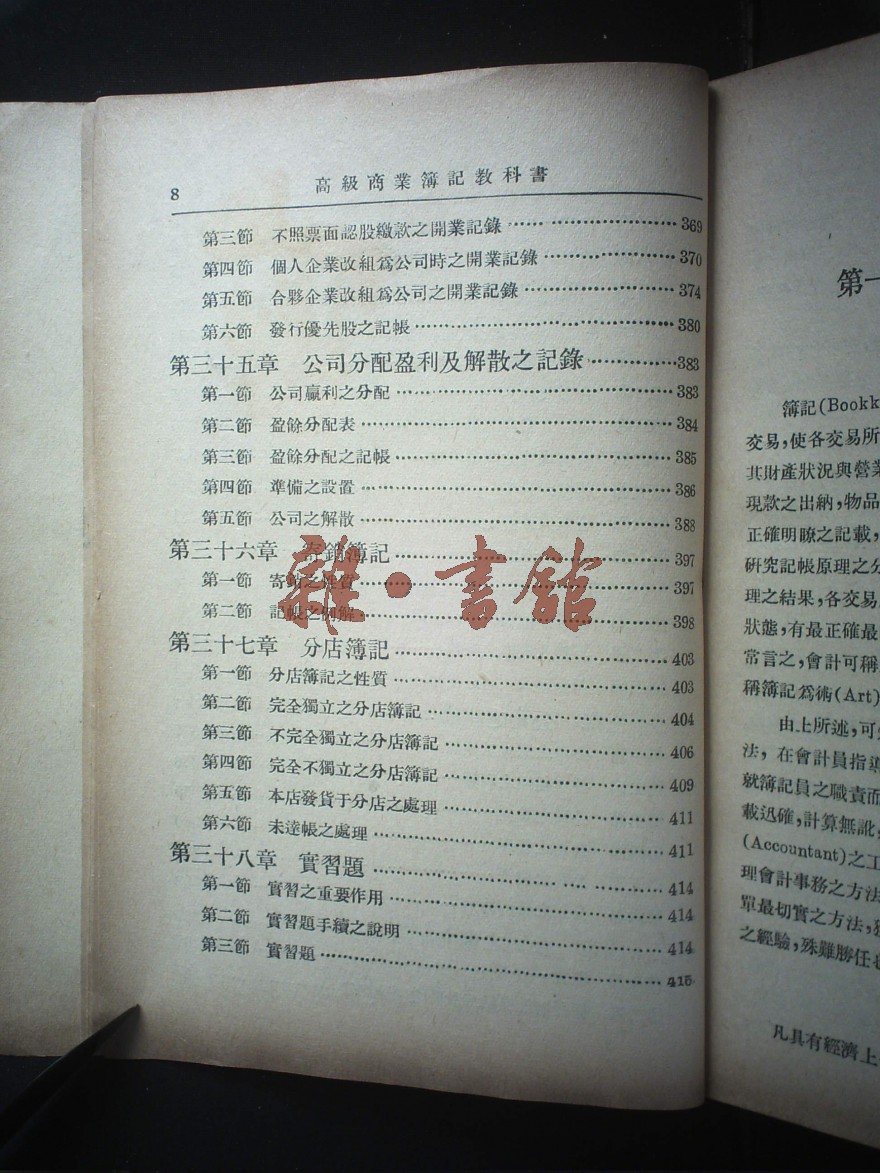 8
高級商業簿記教科書
第三節 不照票面認股繳款之開業記錄 369
第四節 個人企業改組爲公司時之開業記錄 370
第五節 合夥企業改組爲公司之開業記錄 374
第六節 發行優先股之記帳 380
第三十五章 公司分配盈利及解散之記錄 383
第一節 公司贏利之分配 383
第二節 盈餘分配表 384
第三節 盈餘分配之記帳 385
第四節 準備之設置 386
第五節 公司之解散 388
第三十六章 寄銷簿記 397
第一節 寄銷之性質 397
第二節 記帳之例解 398
雜·書館
第三十七章 分店簿記 403
第一節 分店簿記之性質 403
第二節 完全獨立之分店簿記 404
第三節 不完全獨立之分店簿記 406
第四節 完全不獨立之分店簿記 409
第五節 本店發貨于分店之處理 411
第六節 未達帳之處理 411
第三十八章 實習題 414
第一節 實習之重要作用 414
第二節 實習題手續之說明 414
第三節 實習題 415
第一
簿記(Bookk
交易,使各交易所
其財產狀況與營業
現款之出納,物品
正確明瞭之記載,
研究記帳原理之分
理之結果,各交易
狀態,有最正確最
常言之,會計可稱
稱簿記爲術(Art)
由上所述,可
法,在會計員指導
就簿記員之職責而
載迅確,計算無訛,
(Accountant)之工
理會計事務之方法
單最切實之方法,
之經驗,殊難勝任
凡具有經濟上